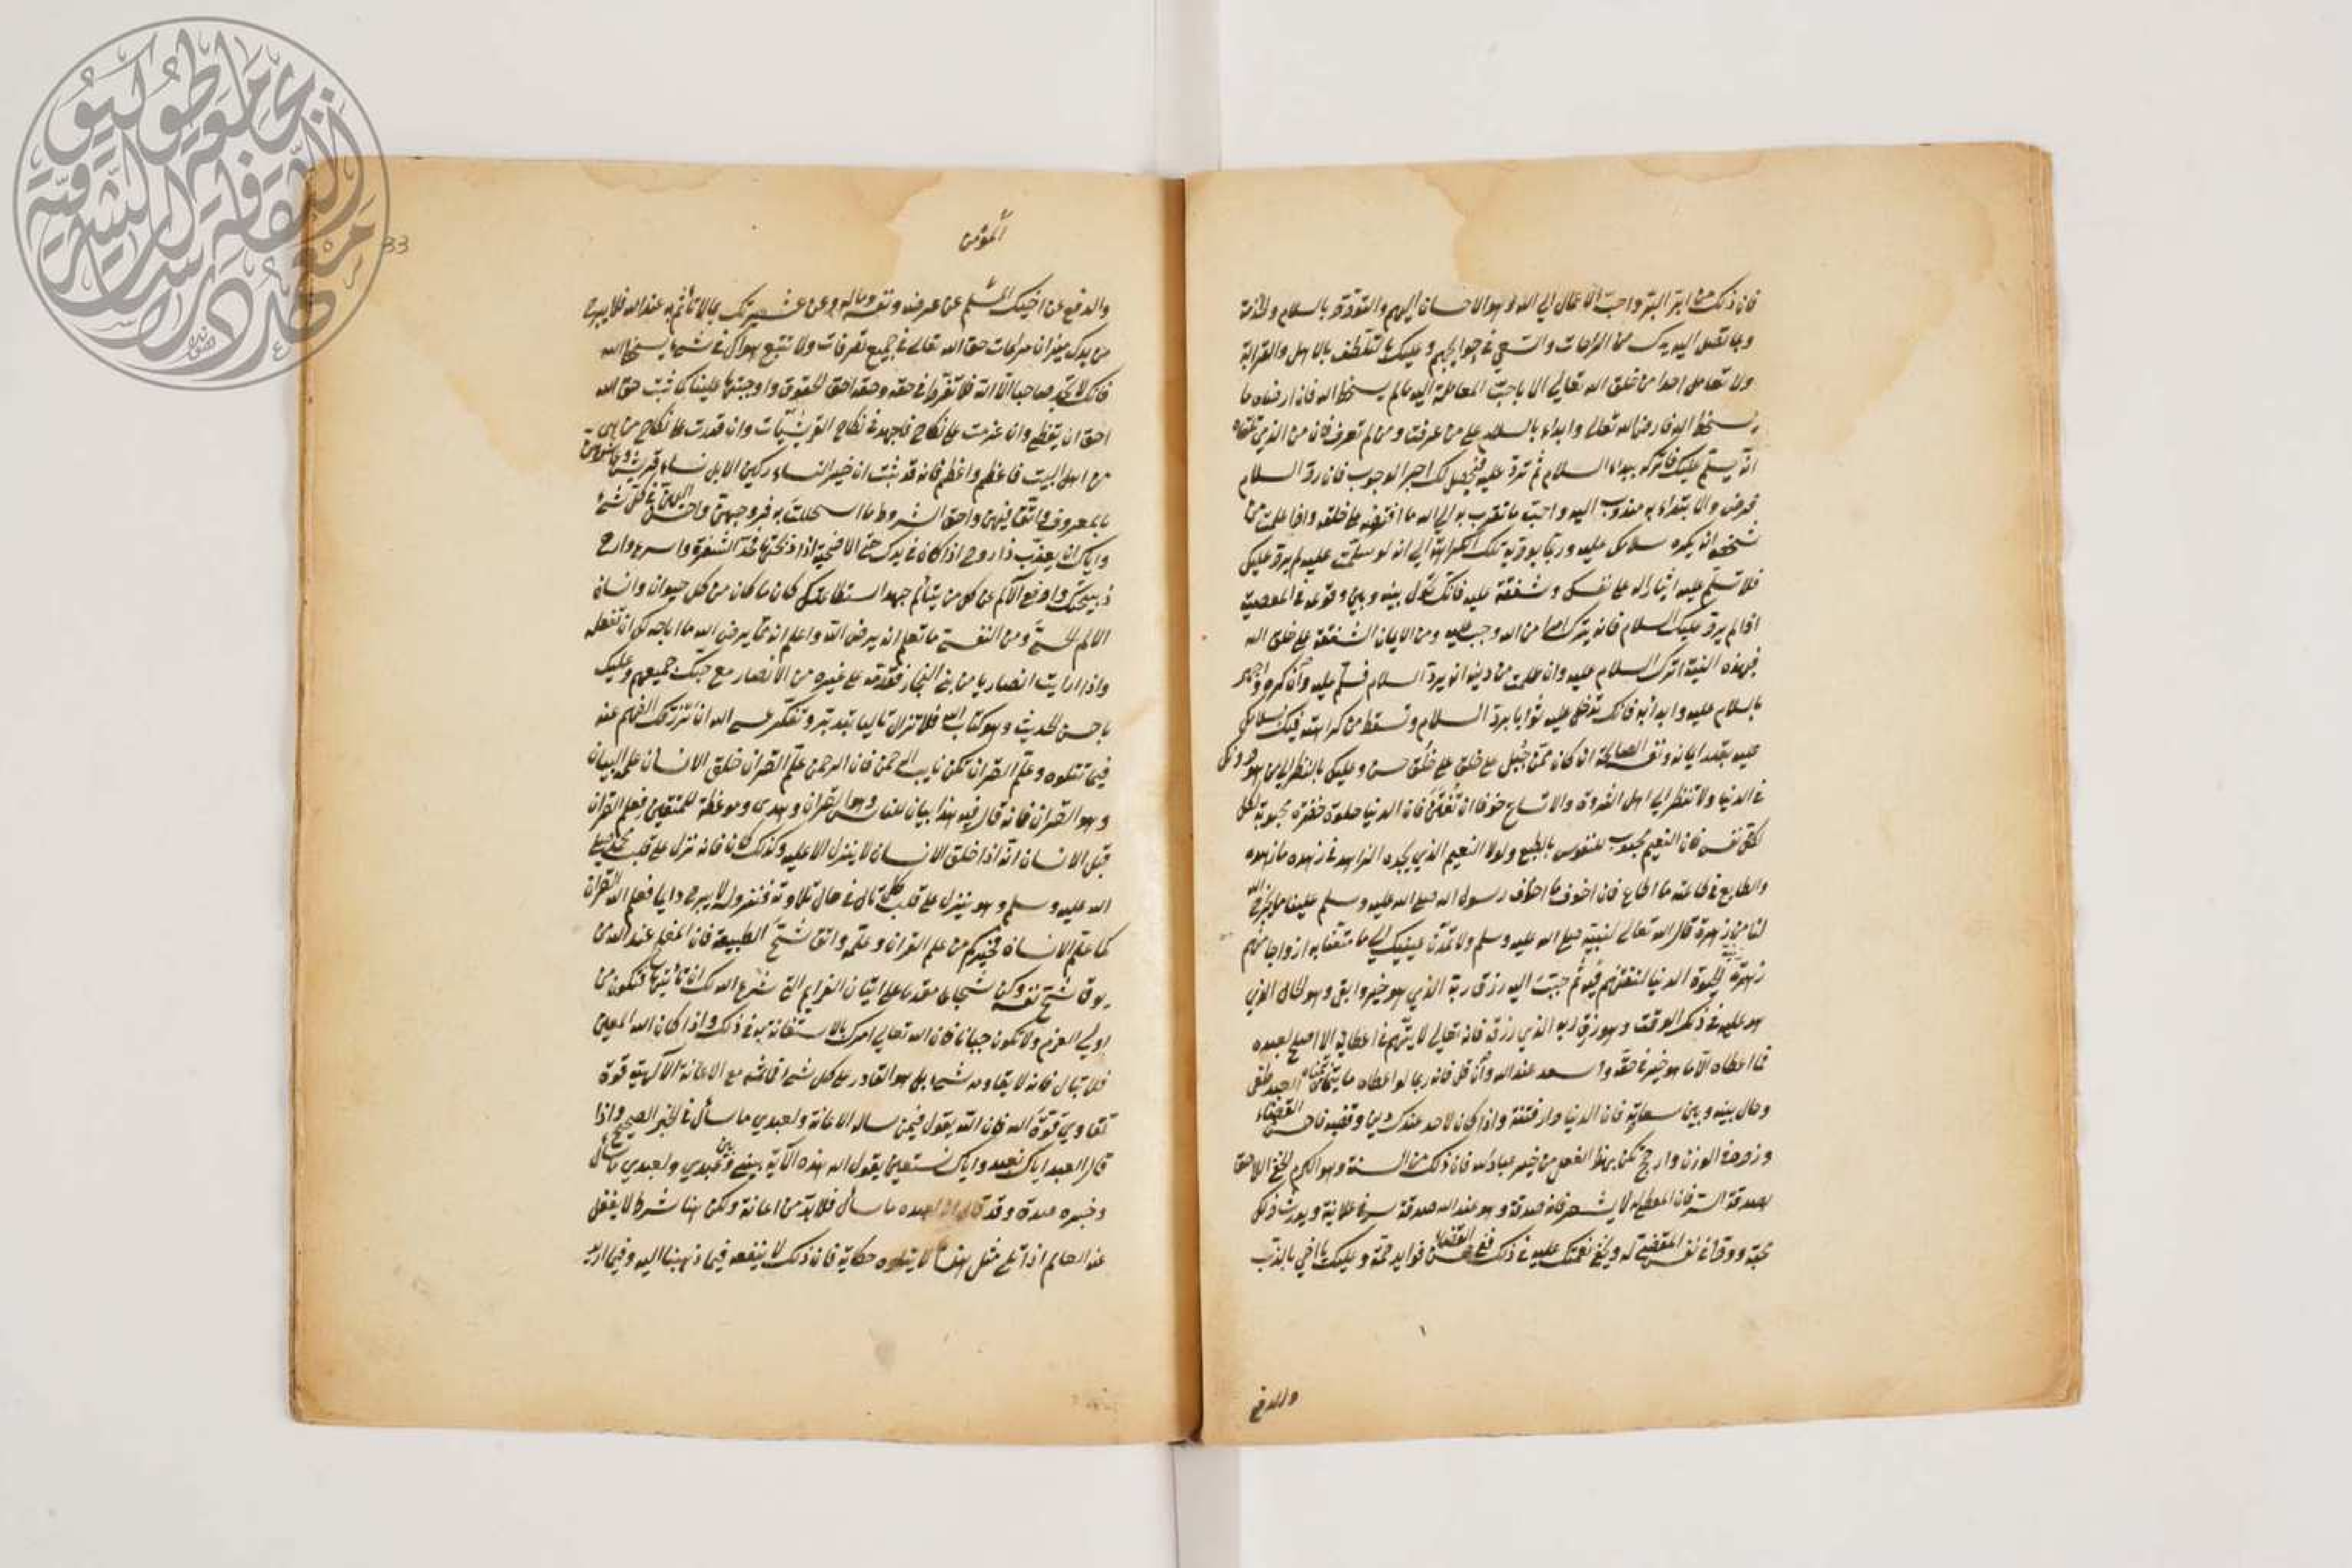 فان ذلك من ابر البر واحب الاعمال الى الله وهو الاحسان اليهم والتودد بالسلام والخدمة
وبما تصل اليه يدك من الراحات والسعي في حوايجهم وعليك بالتلطف بالاهل والقرابة
ولا تعامل احدا من خلق الله تعالى الا باحب المعاملة اليه ما لم يسخط الله فان ارضاه ما
يسخط الله فارض الله تعالى وابداء بالسلام على من عرفت ومن لم تعرف فان من الذي تلقاه
انه يسلم عليك فاتركه يبداء السلام ثم ترد عليه فيحصل لك اجر الوجوب فان رد السلام
فرض والابتداء به مندوب اليه واحب ما تقرب به الى الله ما افترضه على خلقه واذا علمت من
شخص انه يكره سلامك عليه وربما يوديه تلك الكراهة الى انه لو سلمت عليه لم يرد عليك
فلا تسلم عليه ايثارا له على نفسك وشفقة عليه فانك تحول بينه وبين وقوعه في المعصية
اذا لم يرد عليك السلام فانه يترك امرا من الله وجب عليه ومن الايمان الشفقة على خلق الله
فبهذه النية اترك السلام عليه وان علمت من دينه انه يرد السلام فسلم عليه وان كره واجهر
بالسلام عليه وابدا به فانك تدخل عليه ثوابا برد السلام وتسقط من كراهته فيك بسلامك
عليه بقدر ايمانه ونفسه الصالحة ان كان ممن جبل على خلق على خلق حسن وعليك بالنظر الى من هو دونك
في الدنيا ولا تنظر الى اهل الثروة والاتساع خوفا ان تفتتن فان الدنيا حلوة خضرة محبوبة لكل
لكل نفس فان النعيم محبوب للنفوس بالطبع ولولا النعيم الذي يجده الزاهد في زهده ما زهد
والطايع في طاعته ما اطاع فان اخوف ما اخاف رسول الله صلى الله عليه وسلم علينا ما يخرج الله
لنا من زهرة قال الله تعالى لنبيه صلى الله عليه وسلم ولا تمدن عينيك الى ما متعنا به ازواجا منهم
زهرة الحيوة الدنيا لنفتنهم فيه ثم حبب اليه رزق ربه الذي هو خير وابقى وهو الحال الذي
هو عليه في ذلك الوقت وهو رزق ربه الذي رزقه فانه تعالى لا يتهم في اعطائه الا اصلح لعبده
فما اعطاه الا ما هو خير في حقه واسعد عند الله وان قل فانه ربما لو اعطاه ما يتمناه العبد طغى
وحال بينه وبين سعادته فان الدنيا دار فتنة واذا كان لاحد عندك دين وقضيته فاحسن القضاء
وزده في الوزن وارجح تكن بهذا الفعل من خير عباد الله فان ذلك من السنة وهو الكرم الخفي اللاحق
بصدقة السر فان المعطى له لا يشعر فانه صدقة وهو عند الله صدقة سر في علانية ويورث ذلك
محبة وودا في نفس المقضي له ويخفي نعمتك عليه في ذلك ففي حسن القضاء فوايد جمة وعليك يا اخي بالذب
والدفع
المؤمن
والدفع عن اخيك المسلم عن عرضه ونفسه وماله وعن عشيرتك بما لا تأثم به عند الله فلا يبرح
من يدك ميزان مراعات حق الله تعالى في جميع تصرفات ولا تتبع هواك في شيء يسخط الله
فانك لا تجد صاحبا الا الله فلا تفرط في حقه وحقه احق الحقوق واوجبها علينا كما ثبت حق الله
احق ان يقضى وان عزمت على نكاح فاجهد في نكاح القرشيات وان قدرت على نكاح من هي
من اهل البيت فاعظم واعظم فانه قد ثبت ان خير النساء ركبن الابل نساء قريش وعاشرهن
بالمعروف واتق الله فيهن واحق الشروط ما استحللت به فروجهن واحسن اليهن في كل شيء
واياك ان يعذب ذا روح اذا كان في يدك حتى الاضحية اذا ذبحتها فحد الشفرة واسرع وارح
ذبيحتك وادفع الالم عن كل من يتألم جهد استطاعتك كان ما كان من كل حيوان وانسان
الالم الحسي ومن النفسي ما تعلم ان يرضى الله واعلم انه مما يرضى الله ما اباحه لك ان تفعله
واذا رايت انصاريا من بني النجار فقدمه على غيره من الانصار مع حبك جميعهم وعليك
باحسن الحديث وهو كتاب الله فلا تزال تاليا بتدبر وتفكر عسى الله ان يرزقك الفهم عنه
فيما تتلوه وعلم القران تكن نايب الرحمن فان الرحمن علم القران خلق الانسان علمه البيان
وهو القران فانه قال فيه هذا بيان للناس وهو القران وهدى وموعظة للمتقين فعلم القران
قبل الانسان انه اذا خلق الانسان لا ينزل الا عليه وكذلك كان فانه نزل على قلب محمد صلى
الله عليه وسلم وهو ينزل على قلب كل تال في حال تلاوته فنزوله لا يبرح دايما فعلم الله القران
كما علم الانسان فخيركم من علم القران وعلمه واتق شح الطبيعة فان المفلح عند الله من
يوق شح نفسه وكن شجاعا مقدما على اتيان العزايم التي شرع الله لك ان تأتيها فتكون من
اولى العزم ولا تكون جبانا فان الله تعالى امرك بالاستعانة به في ذلك واذا كان الله المعين
فلا تبال فانه لا يقاومه شيء بل هو القادر على كل شيء فما ثم مع الاعانة الالهية قوة
تقاوي قوة الله فان الله يقول فيمن ساله الاعانة ولعبدي ما سأل في الخبر الصحيح واذا
قال العبد اياك نعبد واياك نستعين يقول الله هذه الاية بيني وبين عبدي ولعبدي ما سأل
وخبره صدق وقد قال ان لعبده ما سأل فلا بد من اعانة ولكن هنا شرط لا يغفل
عنه العالم اذا تلا مثل هذا لا يتلوه حكاية فان ذلك لا ينفعه فيما ذهبنا اليه وفيما اريد
33
بجامعة طوكيو
معهد دراسات الثقافة الشرقية